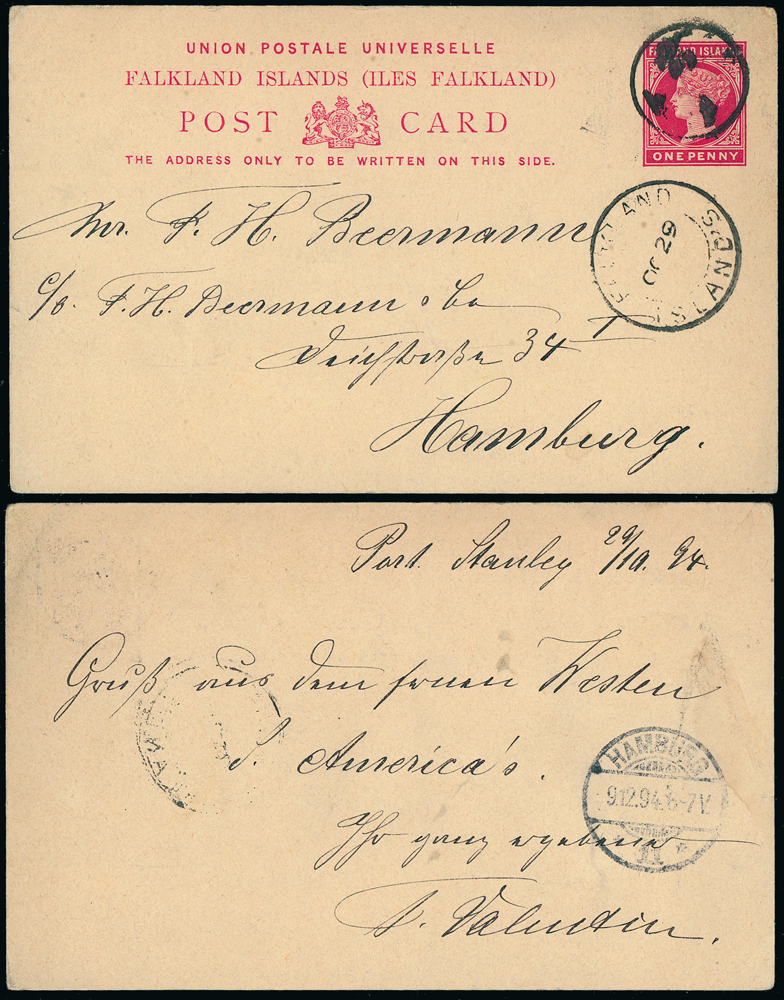 UNION POSTALE UNIVERSELLE
FALKLAND ISLANDS (ILES FALKLAND)
POST CARD
THE ADDRESS ONLY TO BE WRITTEN ON THIS SIDE.
FALKLAND ISLANDS
ONE PENNY
FALKLAND ISLANDS
OC 29
Mr. F. H. Beermann
c/o. F. H. Beermann & Co
Deichstraße 34 I
Hamburg.
Port Stanley 29/10. 94.
Gruß aus dem fernen Westen
S. America's.
Ihr ganz ergebener
F. Valentin.
HAMBURG
9.12.94.6-7V.
* 11 *